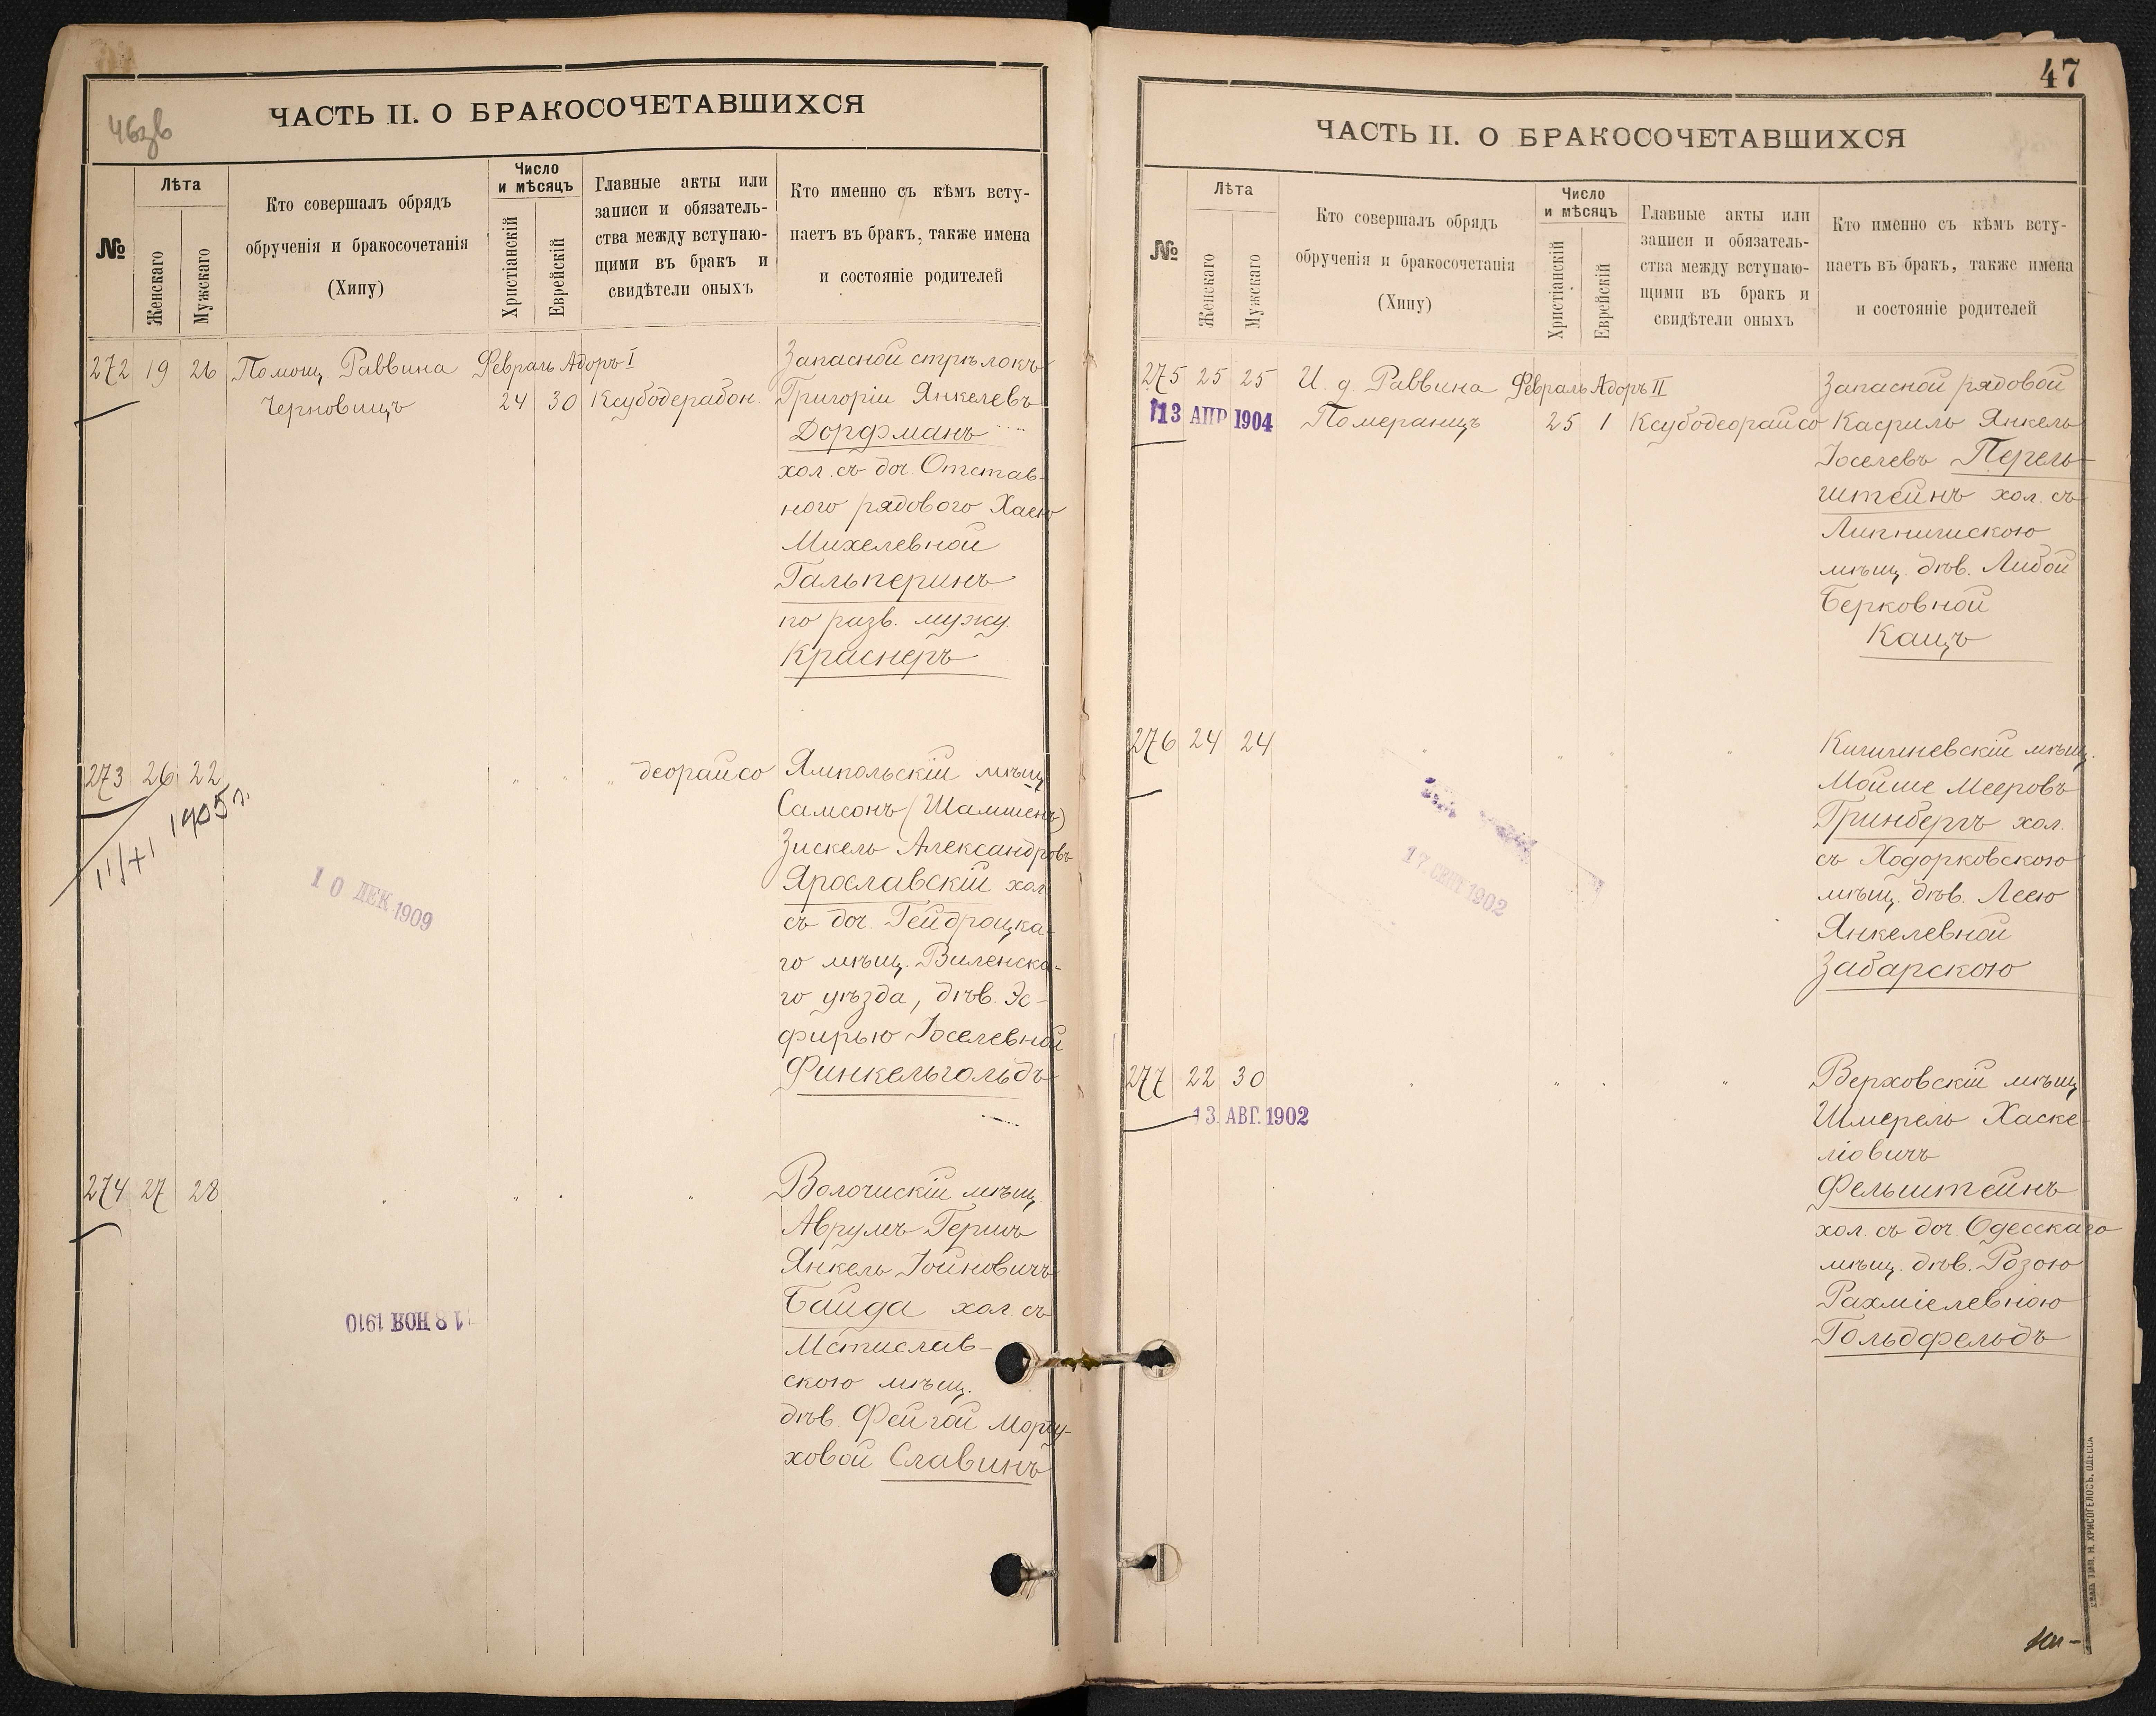 46зв
ЧАСТЬ II. О БРАКОСОЧЕТАВШИХСЯ
№
Лѣта
Женскаго
Мужскаго
Кто совершалъ обрядъ
обрученія и бракосочетанія
(Хипу)
Число
и мѣсяцъ
Христіанскій
Еврейскій
Главные акты или
записи и обязатель-
ства между вступаю-
щими въ бракъ и
свидѣтели оныхъ
Кто именно съ кѣмъ всту-
паетъ въ бракъ, также имена
и состояніе родителей
272 19 26 Помощ. Раввина Февраль Адоръ I Запасной стрѣлокъ
Черновицъ 24 30 Ксубодерабон. Григорій Янкелевъ
Дорфманъ
хол. съ доч. Отстав-
ного рядового Хаею
Михелевной
Гальперинъ
по разв. мужу
Краснеръ
273 26 22 " " " деорайсо Ямпольскій мѣщ.
Самсонъ (Шамшенъ)
Зискель Александровъ
Ярославскій хол.
съ доч. Гейдроцка-
го мѣщ. Виленска-
го уѣзда, дѣв. Эс-
фирью Іоселевной
Финкельгольдъ
1905 г.
10 ДЕК 1909
274 27 28 " " " " Волочискій мѣщ.
Аврумъ Гершъ
Янкель Іойновичъ
Байда хол. съ
Мстислав-
скою мѣщ.
дѣв. Фейгой Морду-
ховой Славинъ
18 НОЯ 1910
47
ЧАСТЬ II. О БРАКОСОЧЕТАВШИХСЯ
№
Лѣта
Женскаго
Мужскаго
Кто совершалъ обрядъ
обрученія и бракосочетанія
(Хипу)
Число
и мѣсяцъ
Христіанскій
Еврейскій
Главные акты или
записи и обязатель-
ства между вступаю-
щими въ бракъ и
свидѣтели оныхъ
Кто именно съ кѣмъ всту-
паетъ въ бракъ, также имена
и состояніе родителей
275 25 25 И. д. Раввина Февраль Адоръ II Запасной рядовой
13 АПР 1904 Померанцъ 25 1 Ксубодеорайсо Касриль Янкель
Іоселевъ Перель-
штейнъ хол. съ
мѣщ. дѣв. Либой
Берковной
Кацъ
276 24 24 " " " " Кишиневскій мѣщ.
Мойше Мееровъ
Гринбергъ хол.
съ Ходорковскою
мѣщ. дѣв. Леею
Янкелевной
Забарскою
17 СЕНТ 1902
277 22 30 " " " " Верховскій мѣщ.
13. АВГ. 1902
Шмерель Хаске-
ліовичъ
Фельштейнъ
хол. съ доч. Одесскаго
мѣщ. дѣв. Розою
Рахміелевною
Гольдфельдъ
ТИП. Н. ХРИСОГЕЛОСЪ, ОДЕССА